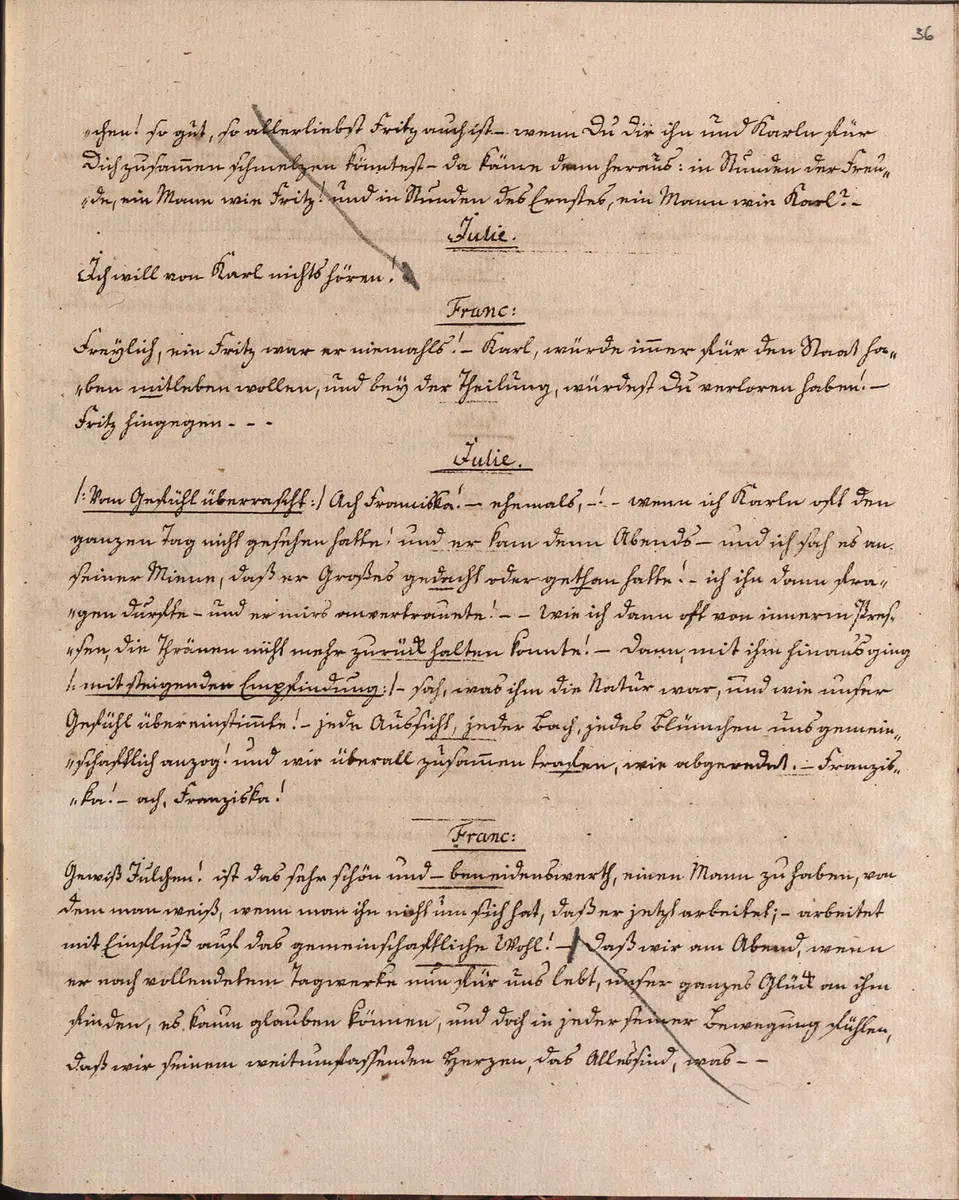 36
„chen! so gut, so allerliebst Fritz auch ist – wenn Du dir ihn und Karln für
Dich zusammen schmelzen könntest – da käme dann heraus: in Stunden der Freu„
„de, ein Mann wie Fritz! und in Stunden des Ernstes, ein Mann wie Karl? –
Julie.
Ich will von Karl nichts hören!
Franc:
Freÿlich, ein Fritz war er niemahls! – Karl, würde immer für den Staat ha„
„ben mitleben wollen, und beÿ der Theilung, würdest Du verloren haben! –
Fritz hingegen - - -
Julie.
/: Vom Gefühl überrascht :/ Ach Franciska! – ehemals, –! – wenn ich Karln oft den
ganzen Tag nicht gesehen hatte! und er kam denn Abends – und ich sah es an
seiner Miene, daß er Großes gedacht oder gethan hatte! – ich ihn dann fra„
„gen durfte – und er mirs anvertrauete! – – Wie ich dann oft von innerm Pres„
„sen, die Thränen nicht mehr zurück halten konnte! – Dann, mit ihm hinaus ging
/: mit steigender Empfindung :/ – sah, was ihm die Natur war, und wie unser
Gefühl übereinstimmte! – jede Aussicht, jeder Bach, jedes Blümchen uns gemein„
„schaftlich anzog! und wir überall zusammen trafen, wie abgeredet. – Franzis„
„ka! – ach, Franziska!
Franc:
Gewiß Julchen! ist das sehr schön und – beneidenswerth, einen Mann zu haben, von
dem man weiß, wenn man ihn nicht um sich hat, daß er jetzt arbeitet; – arbeitet
mit Einfluß auf das gemeinschaftliche Wohl! – Daß wir am Abend, wenn
er nach vollendetem Tagwerke nun für uns lebt, unser ganzes Glück an ihm
finden, es kaum glauben können, und doch in jeder seiner Bewegung fühlen,
daß wir seinem weitumfassenden Herzen, das Alles sind, was – –